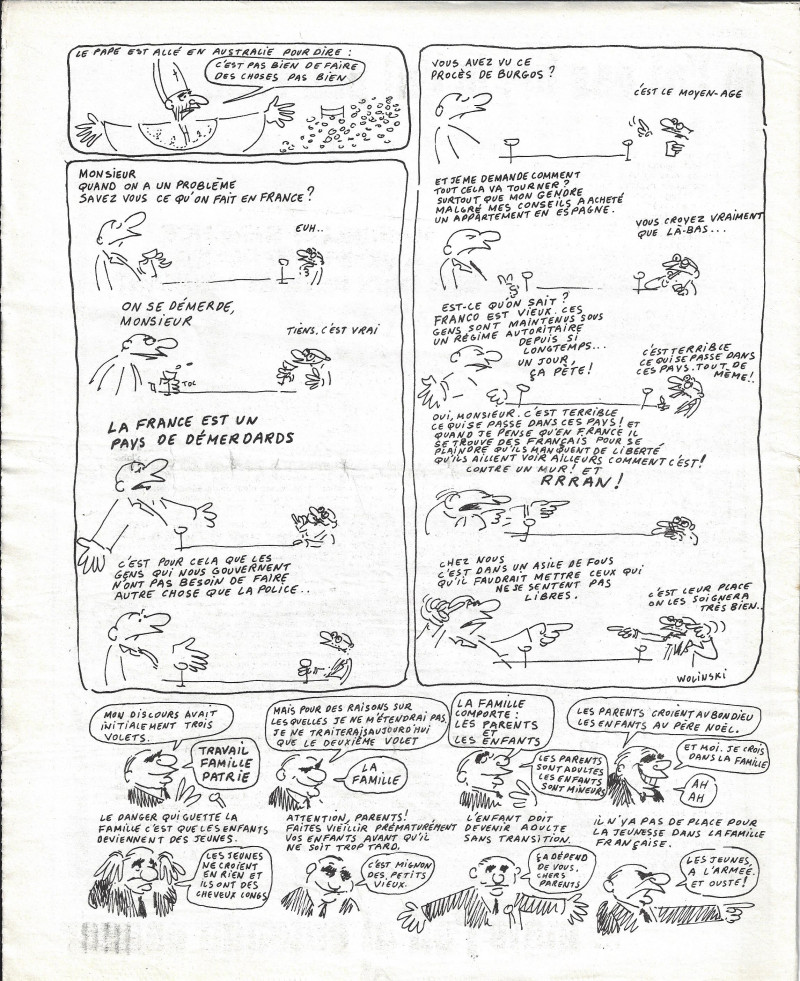 LE PAPE EST ALLÉ EN AUSTRALIE POUR DIRE :
C'EST PAS BIEN DE FAIRE
DES CHOSES PAS BIEN
MONSIEUR
QUAND ON A UN PROBLÈME
SAVEZ VOUS CE QU'ON FAIT EN FRANCE ?
EUH..
ON SE DÉMERDE,
MONSIEUR
TIENS, C'EST VRAI
TOC
LA FRANCE EST UN
PAYS DE DÉMERDARDS
C'EST POUR CELA QUE LES
GENS QUI NOUS GOUVERNENT
N'ONT PAS BESOIN DE FAIRE
AUTRE CHOSE QUE LA POLICE..
VOUS AVEZ VU CE
PROCÈS DE BURGOS ?
C'EST LE MOYEN-AGE
ET JE ME DEMANDE COMMENT
TOUT CELA VA TOURNER ?
SURTOUT QUE MON GENDRE
MALGRÉ MES CONSEILS A ACHETÉ
UN APPARTEMENT EN ESPAGNE.
VOUS CROYEZ VRAIMENT
QUE LÀ-BAS...
EST-CE QU'ON SAIT ?
FRANCO EST VIEUX. CES
GENS SONT MAINTENUS SOUS
UN RÉGIME AUTORITAIRE
DEPUIS SI
LONGTEMPS...
UN JOUR,
ÇA PÈTE!
C'EST TERRIBLE
CE QUI SE PASSE DANS
CES PAYS. TOUT DE
MÊME!.
OUI, MONSIEUR. C'EST TERRIBLE
CE QUI SE PASSE DANS CES PAYS! ET
QUAND JE PENSE QU'EN FRANCE IL
SE TROUVE DES FRANÇAIS POUR SE
PLAINDRE QU'ILS MANQUENT DE LIBERTÉ
QU'ILS AILLENT VOIR AILLEURS COMMENT C'EST!
CONTRE UN MUR! ET
RRRAN!
CHEZ NOUS
C'EST DANS UN ASILE DE FOUS
QU'IL FAUDRAIT METTRE CEUX QUI
NE SE SENTENT PAS
LIBRES.
C'EST LEUR PLACE
ON LES SOIGNERA
TRÈS BIEN..
WOLINSKI
MON DISCOURS AVAIT
INITIALEMENT TROIS
VOLETS.
TRAVAIL
FAMILLE
PATRIE
MAIS POUR DES RAISONS SUR
LESQUELLES JE NE M'ÉTENDRAI PAS,
JE NE TRAITERAIS AUJOURD'HUI
QUE LE DEUXIÈME VOLET
LA
FAMILLE
LA FAMILLE
COMPORTE :
LES PARENTS
ET
LES ENFANTS
LES PARENTS
SONT ADULTES
LES ENFANTS
SONT MINEURS
LES PARENTS CROIENT AU BON DIEU
LES ENFANTS AU PÈRE NOËL.
ET MOI. JE CROIS
DANS LA FAMILLE
AH
AH
LE DANGER QUI GUETTE LA
FAMILLE C'EST QUE LES ENFANTS
DEVIENNENT DES JEUNES.
LES JEUNES
NE CROIENT
EN RIEN ET
ILS ONT DES
CHEVEUX LONGS
ATTENTION, PARENTS!
FAITES VIEILLIR PRÉMATURÉMENT
VOS ENFANTS AVANT QU'IL
NE SOIT TROP TARD.
C'EST MIGNON
DES, PETITS
VIEUX.
L'ENFANT DOIT
DEVENIR ADULTE
SANS TRANSITION.
ÇA DÉPEND
DE VOUS.
CHERS
PARENTS
IL N'YA PAS DE PLACE POUR
LA JEUNESSE DANS LA FAMILLE
FRANÇAISE.
LES JEUNES,
A L'ARMÉE.
ET OUSTE!